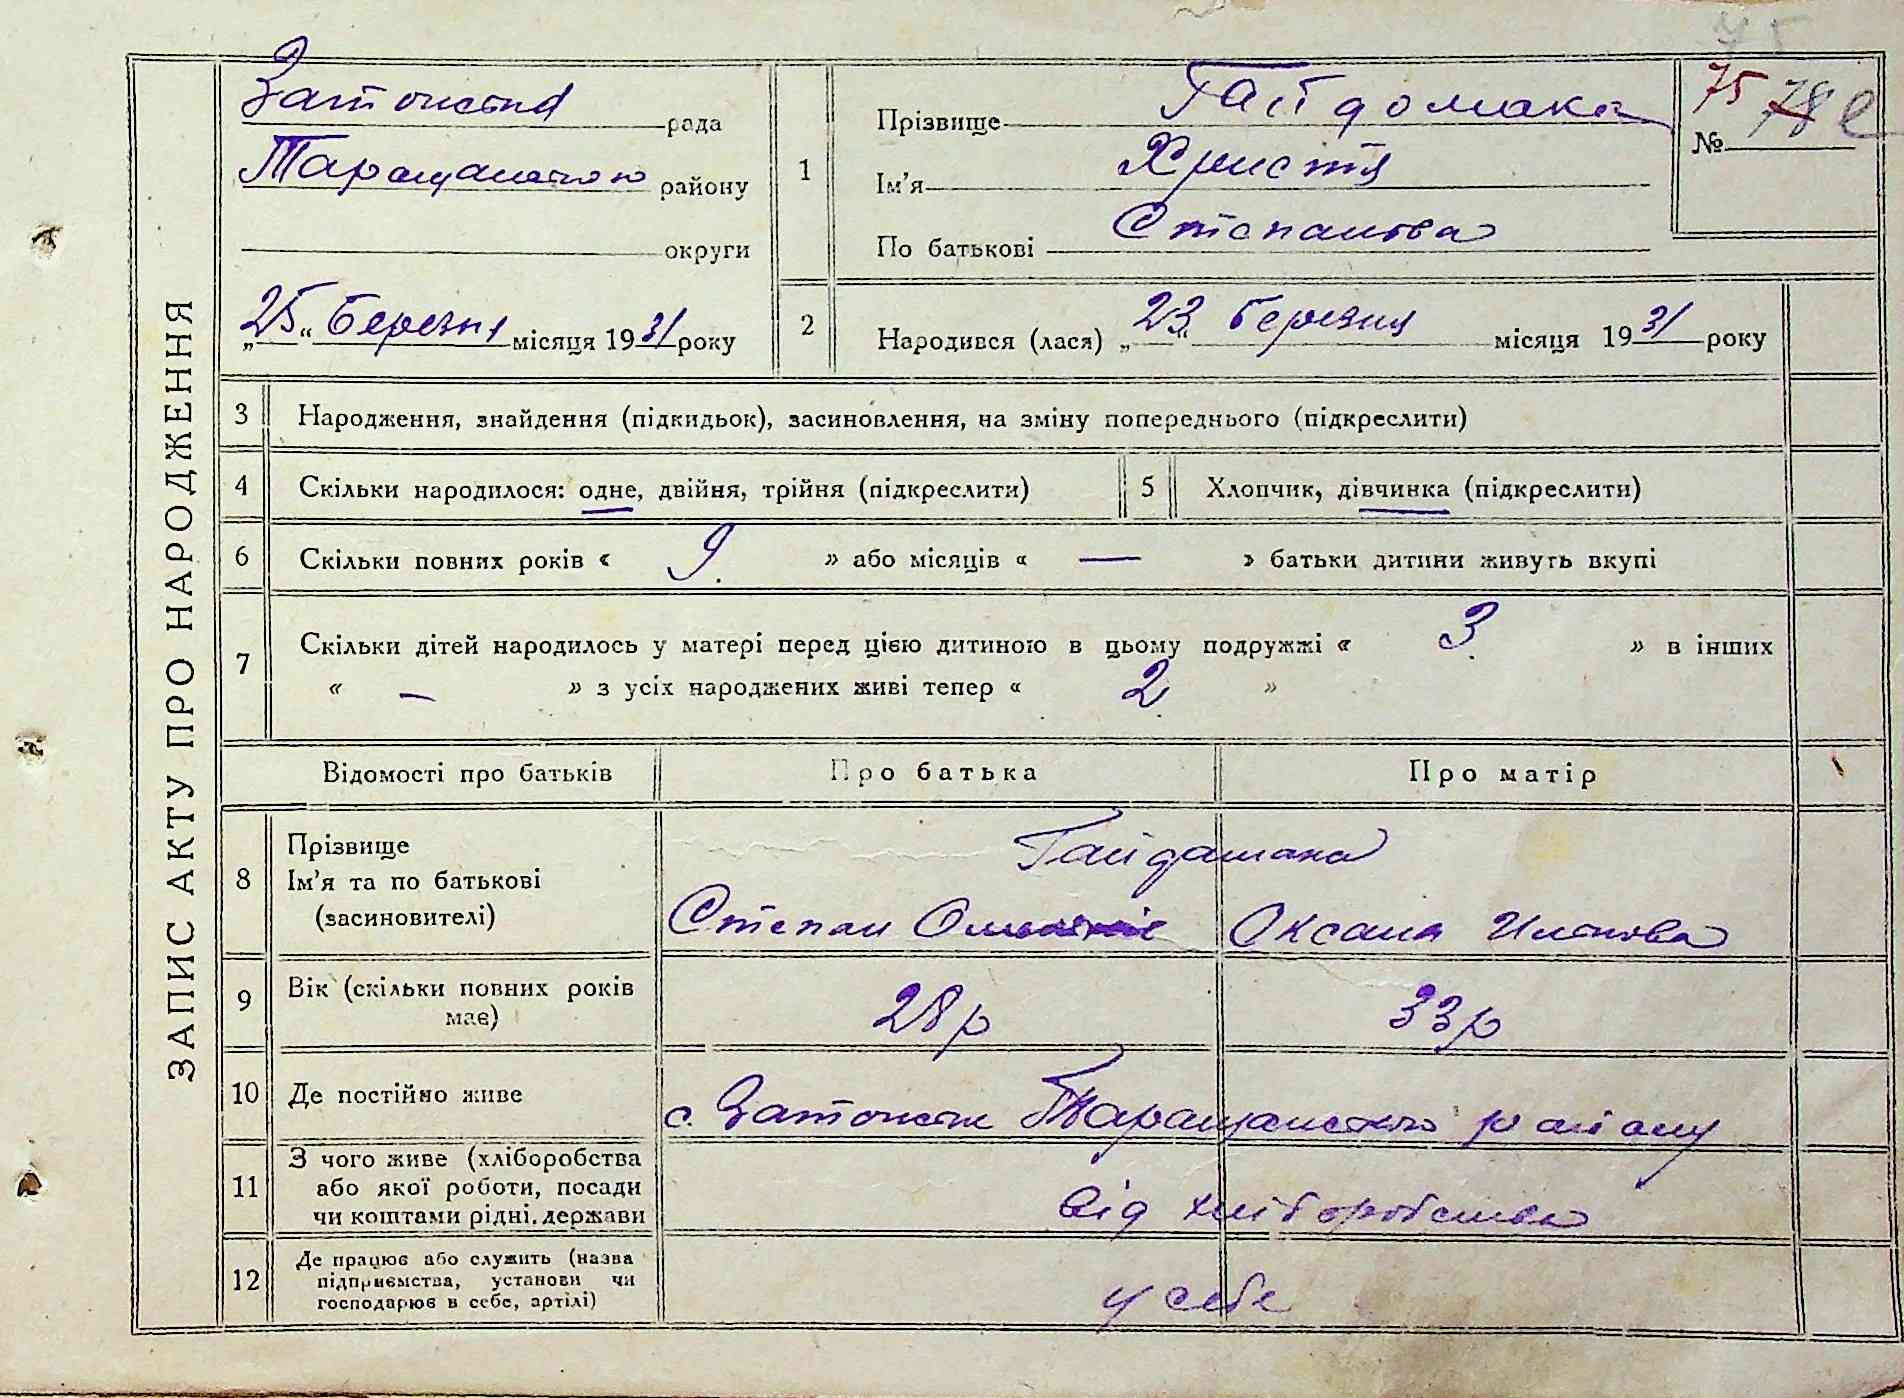 ЗАПИС АКТУ ПРО НАРОДЖЕННЯ
рада
Таращанського району
округи
„25“ Березня місяця 1931 року
1
Прізвище Гайдомака
Ім'я Христя
По батькові Степанова
75 78
№
2
Народився (лася) „23“ березня місяця 1931 року
3 Народження, знайдення (підкидьок), засиновлення, на зміну попереднього (підкреслити)
4 Скільки народилося: одне, двійня, трійня (підкреслити)
5 Хлопчик, дівчинка (підкреслити)
6 Скільки повних років « 9. » або місяців « — » батьки дитини живуть вкупі
7 Скільки дітей народилось у матері перед цією дитиною в цьому подружжі « 3. » в інших
« – » з усіх народжених живі тепер « 2. »
Відомості про батьків Про батька Про матір
8 Прізвище
Ім'я та по батькові
(засиновителі)
Гайдамака
Степан
Оксана
9 Вік (скільки повних років має)
28 р
33 р
10 Де постійно живе
с. Таращанського району
11 З чого живе (хліборобства
або якої роботи, посади
чи коштами рідні, держави
від хліборобства
12 Де працює або служить (назва
підприємства, установи чи
господарює в себе, артілі)
у себе